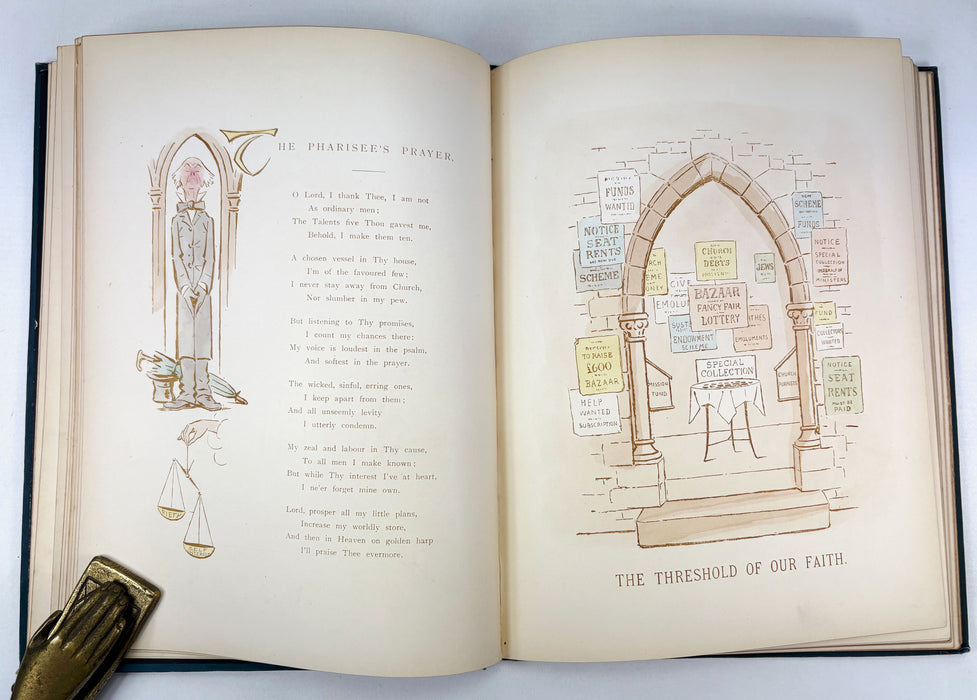 THE PHARISEE'S PRAYER.
O Lord, I thank Thee, I am not
As ordinary men;
The Talents five Thou gavest me,
Behold, I make them ten.
A chosen vessel in Thy house,
I'm of the favoured few;
I never stay away from Church,
Nor slumber in my pew.
But listening to Thy promises,
I count my chances there:
My voice is loudest in the psalm,
And softest in the prayer.
The wicked, sinful, erring ones,
I keep apart from them;
And all unseemly levity
I utterly condemn.
My zeal and labour in Thy cause,
To all men I make known;
But while Thy interest I've at heart,
I ne'er forget mine own.
Lord, prosper all my little plans,
Increase my worldly store,
And then in Heaven on golden harp
I'll praise Thee evermore.
PIETY
SELF
FUNDS
WANTED
NOTICE
SEAT
RENTS
SCHEME
CHURCH
DEBTS
JEWS
GIVE
BAZAAR
FANCY FAIR
LOTTERY
ENDOWMENT
SCHEME
EMOLUMENTS
NEW
SCHEME
FUNDS
NOTICE
SPECIAL
COLLECTION
MINISTERS
FUND
COLLECTORS
WANTED
TO RAISE
£600
BAZAAR
HELP
WANTED
SUBSCRIPTION
MISSION
FUND
SPECIAL
COLLECTION
CHURCH
NOTICE
SEAT
RENTS
MUST BE
PAID
THE THRESHOLD OF OUR FAITH.